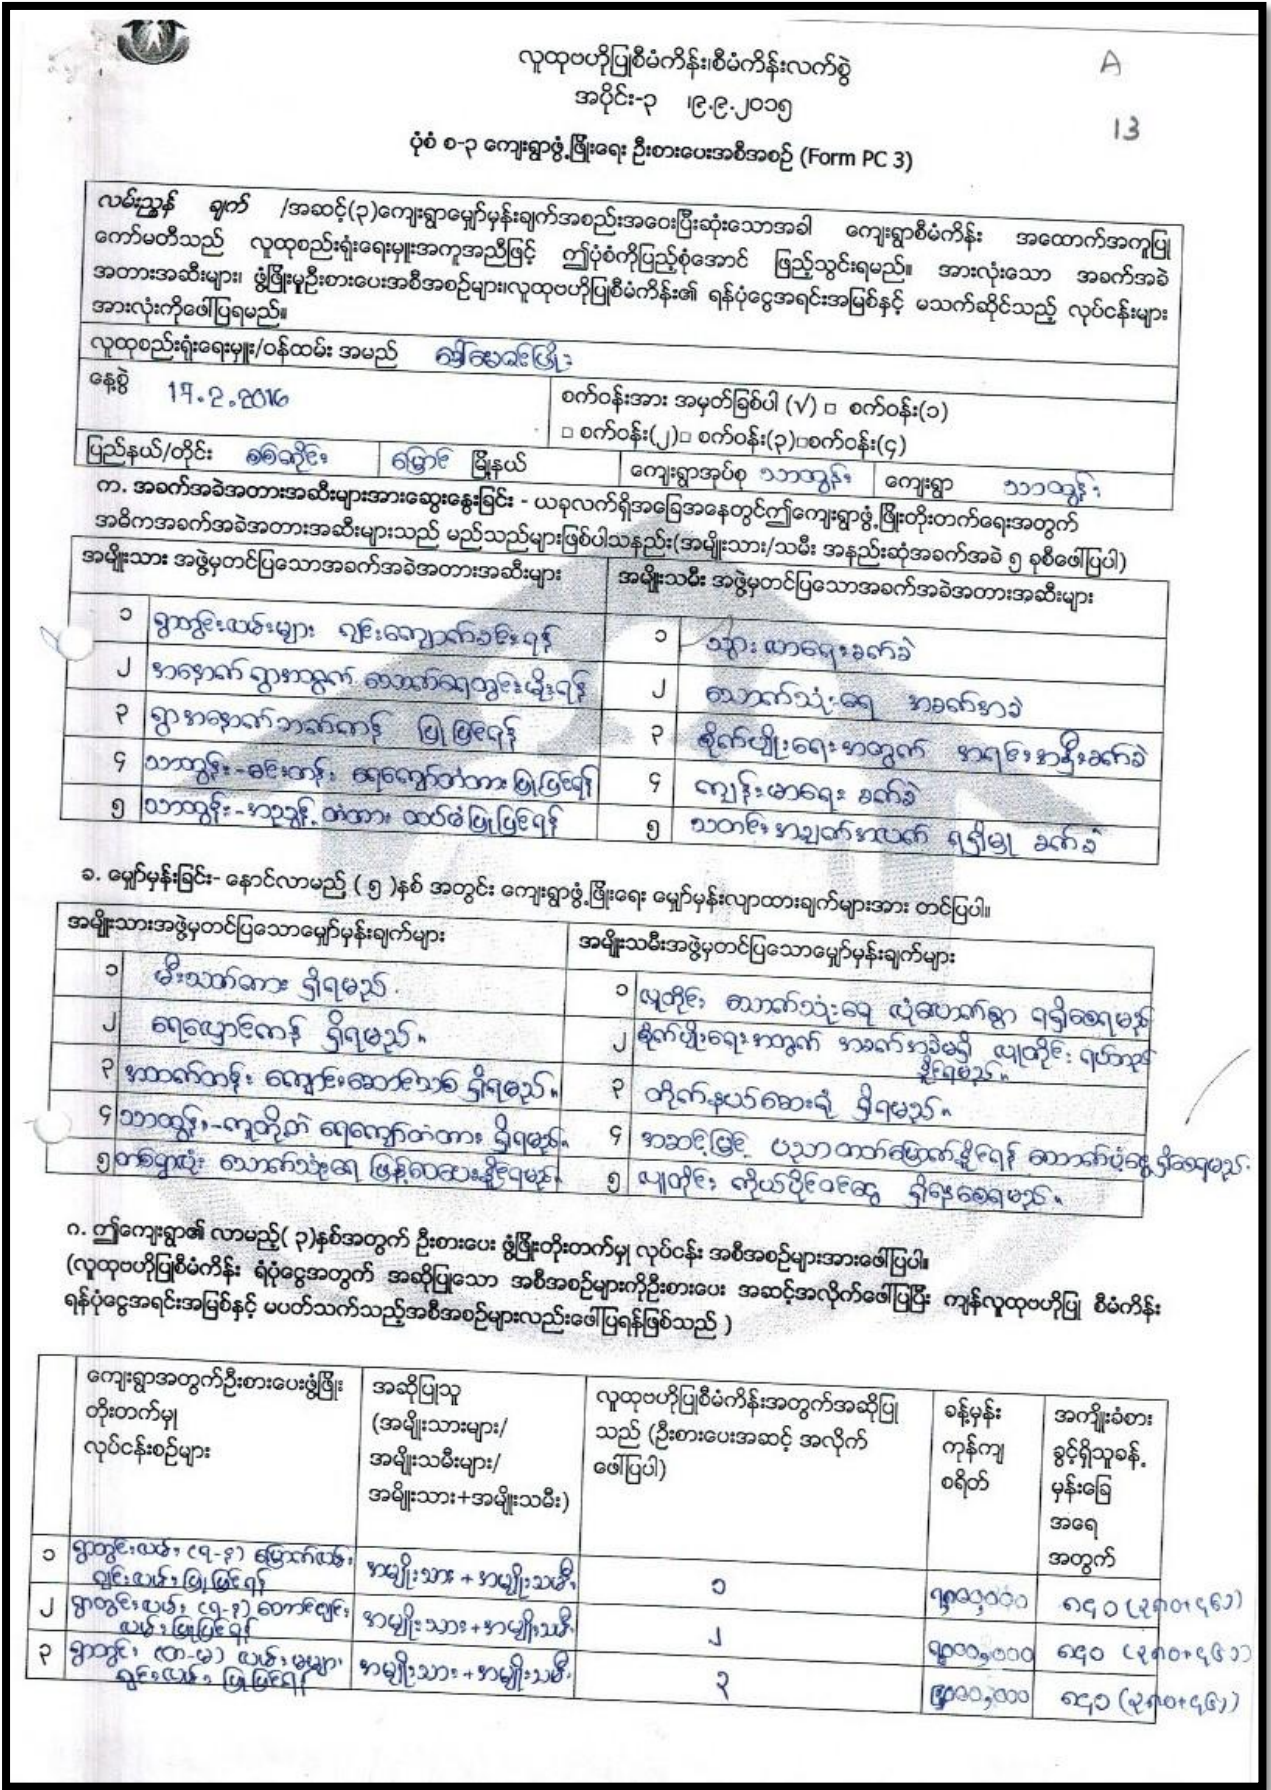 လူထုဗဟိုပြုစီမံကိန်း၊စီမံကိန်းလက်စွဲ
A
အပိုင်း-၃ ၊၉.၉.၂၀၁၅
13
ပုံစံ စ-၃ ကျေးရွာဖွံ့ဖြိုးရေး ဦးစားပေးအစီအစဉ် (Form PC 3)
လမ်းညွှန် ချက် /အဆင့်(၃)ကျေးရွာမျှော်မှန်းချက်အစည်းအဝေးပြီးဆုံးသောအခါ ကျေးရွာစီမံကိန်း အထောက်အကူပြု
ကော်မတီသည် လူထုစည်းရုံးရေးမှူးအကူအညီဖြင့် ဤပုံစံကိုပြည့်စုံအောင် ဖြည့်သွင်းရမည်။ အားလုံးသော အခက်အခဲ
အတားအဆီးများ၊ ဖွံ့ဖြိုးမှုဦးစားပေးအစီအစဉ်များ၊လူထုဗဟိုပြုစီမံကိန်း၏ ရန်ပုံငွေအရင်းအမြစ်နှင့် မသက်ဆိုင်သည့် လုပ်ငန်းများ
အားလုံးကိုဖေါ်ပြရမည်။
လူထုစည်းရုံးရေးမှူး/ဝန်ထမ်း အမည်
နေ့စွဲ 17.2.2016
စက်ဝန်းအား အမှတ်ခြစ်ပါ (√) □ စက်ဝန်း(၁)
□ စက်ဝန်း(၂)□ စက်ဝန်း(၃)□စက်ဝန်း(၄)
ပြည်နယ်/တိုင်း စစ်ကိုင်း မြောင် မြို့နယ် ကျေးရွာအုပ်စု သာထွန်း ကျေးရွာ သာထွန်း
က. အခက်အခဲအတားအဆီးများအားဆွေးနွေးခြင်း - ယခုလက်ရှိအခြေအနေတွင်ဤကျေးရွာဖွံ့ဖြိုးတိုးတက်ရေးအတွက်
အဓိကအခက်အခဲအတားအဆီးများသည် မည်သည်များဖြစ်ပါသနည်း(အမျိုးသား/သမီး အနည်းဆုံအခက်အခဲ ၅ ခုစီဖေါ်ပြပါ)
အမျိုးသား အဖွဲ့မှတင်ပြသောအခက်အခဲအတားအဆီးများ
အမျိုးသမီး အဖွဲ့မှတင်ပြသောအခက်အခဲအတားအဆီးများ
၁ ရွာတွင်းလမ်းများ ဂျင်းကျောက်ခင်းရန်
၁ သွားလာရေးခက်ခဲ
၂ အနောက်ရွာအတွက် သောက်ရေတွင်းမျိုးရန်
၂ သောက်သုံးရေ အခက်အခဲ
၃ ရွာအနောက်ဘက်ကန် ပြုပြင်ရန်
၃ စိုက်ပျိုးရေးအတွက် အရင်းအနှီးခက်ခဲ
၄ သာထွန်း- ရေကျော်တံတားပြုပြင်ရန်
၄ ကျန်းမာရေး ခက်ခဲ
၅ သာထွန်း- တံတား ထပ်မံပြုပြင်ရန်
၅ သတင်းအချက်အလက် ရရှိမှု ခက်ခဲ
ခ. မျှော်မှန်းခြင်း- နောင်လာမည် ( ၅ )နှစ် အတွင်း ကျေးရွာဖွံ့ဖြိုးရေး မျှော်မှန်းလျာထားချက်များအား တင်ပြပါ။
အမျိုးသားအဖွဲ့မှတင်ပြသောမျှော်မှန်းချက်များ
အမျိုးသမီးအဖွဲ့မှတင်ပြသောမျှော်မှန်းချက်များ
၁ မီးသတ်ကား ရှိရမည်.
၁ လူတိုင်း သောက်သုံးရေ လုံလောက်စွာ ရရှိစေရမည်
၂ ရေလှောင်ကန် ရှိရမည်။
၂ စိုက်ပျိုးရေးအတွက် အခက်အခဲမရှိ လူတိုင်း ရပ်တည်
နိုင်ရမည်။
၃ အထက်တန်း ကျောင်းဆောင်သစ် ရှိရမည်။
၃ တိုက်နယ်ဆေးရုံ ရှိရမည်။
၄ သာထွန်း- ရေကျော်တံတား ရှိရမည်။
၄ အဆင့်မြင့် ပညာတတ်မြောက်နိုင်ရန် ထောက်ပံ့ငွေရှိစေရမည်.
၅ တစ်ရွာလုံး သောက်သုံးရေ ဖြန့်ဝေပေးနိုင်ရမည်။
၅ လူတိုင်း ကိုယ်ပိုင်ဝင်ငွေ ရှိနေစေရမည်။
ဂ. ဤကျေးရွာ၏ လာမည့်( ၃)နှစ်အတွက် ဦးစားပေး ဖွံ့ဖြိုးတိုးတက်မှု လုပ်ငန်း အစီအစဉ်များအားဖေါ်ပြပါ။
(လူထုဗဟိုပြုစီမံကိန်း ရံပုံငွေအတွက် အဆိုပြုသော အစီအစဉ်များကိုဦးစားပေး အဆင့်အလိုက်ဖေါ်ပြပြီး ကျန်လူထုဗဟိုပြု စီမံကိန်း
ရန်ပုံငွေအရင်းအမြစ်နှင့် မပတ်သက်သည့်အစီအစဉ်များလည်းဖေါ်ပြရန်ဖြစ်သည် )
ကျေးရွာအတွက်ဦးစားပေးဖွံ့ဖြိုး
တိုးတက်မှု
လုပ်ငန်းစဉ်များ
အဆိုပြုသူ
(အမျိုးသားများ/
အမျိုးသမီးများ/
အမျိုးသား+အမျိုးသမီး)
လူထုဗဟိုပြုစီမံကိန်းအတွက်အဆိုပြု
သည် (ဦးစားပေးအဆင့် အလိုက်
ဖေါ်ပြပါ)
ခန့်မှန်း
ကုန်ကျ
စရိတ်
အကျိုးခံစား
ခွင့်ရှိသူခန့်
မှန်းခြေ
အရေ
အတွက်
၁ ရွာတွင်းလမ်း မြောက်လမ်း
ဂျင်းလမ်း ပြုပြင်ရန်
အမျိုးသား + အမျိုးသမီး
၁
၂ ရွာတွင်းလမ်း တောင်ဂျင်း
လမ်း ပြုပြင်ရန်
အမျိုးသား + အမျိုးသမီး
၂
၃ ရွာတွင်း
ဂျင်းလမ်း ပြုပြင်ရန်
အမျိုးသား + အမျိုးသမီး
၃